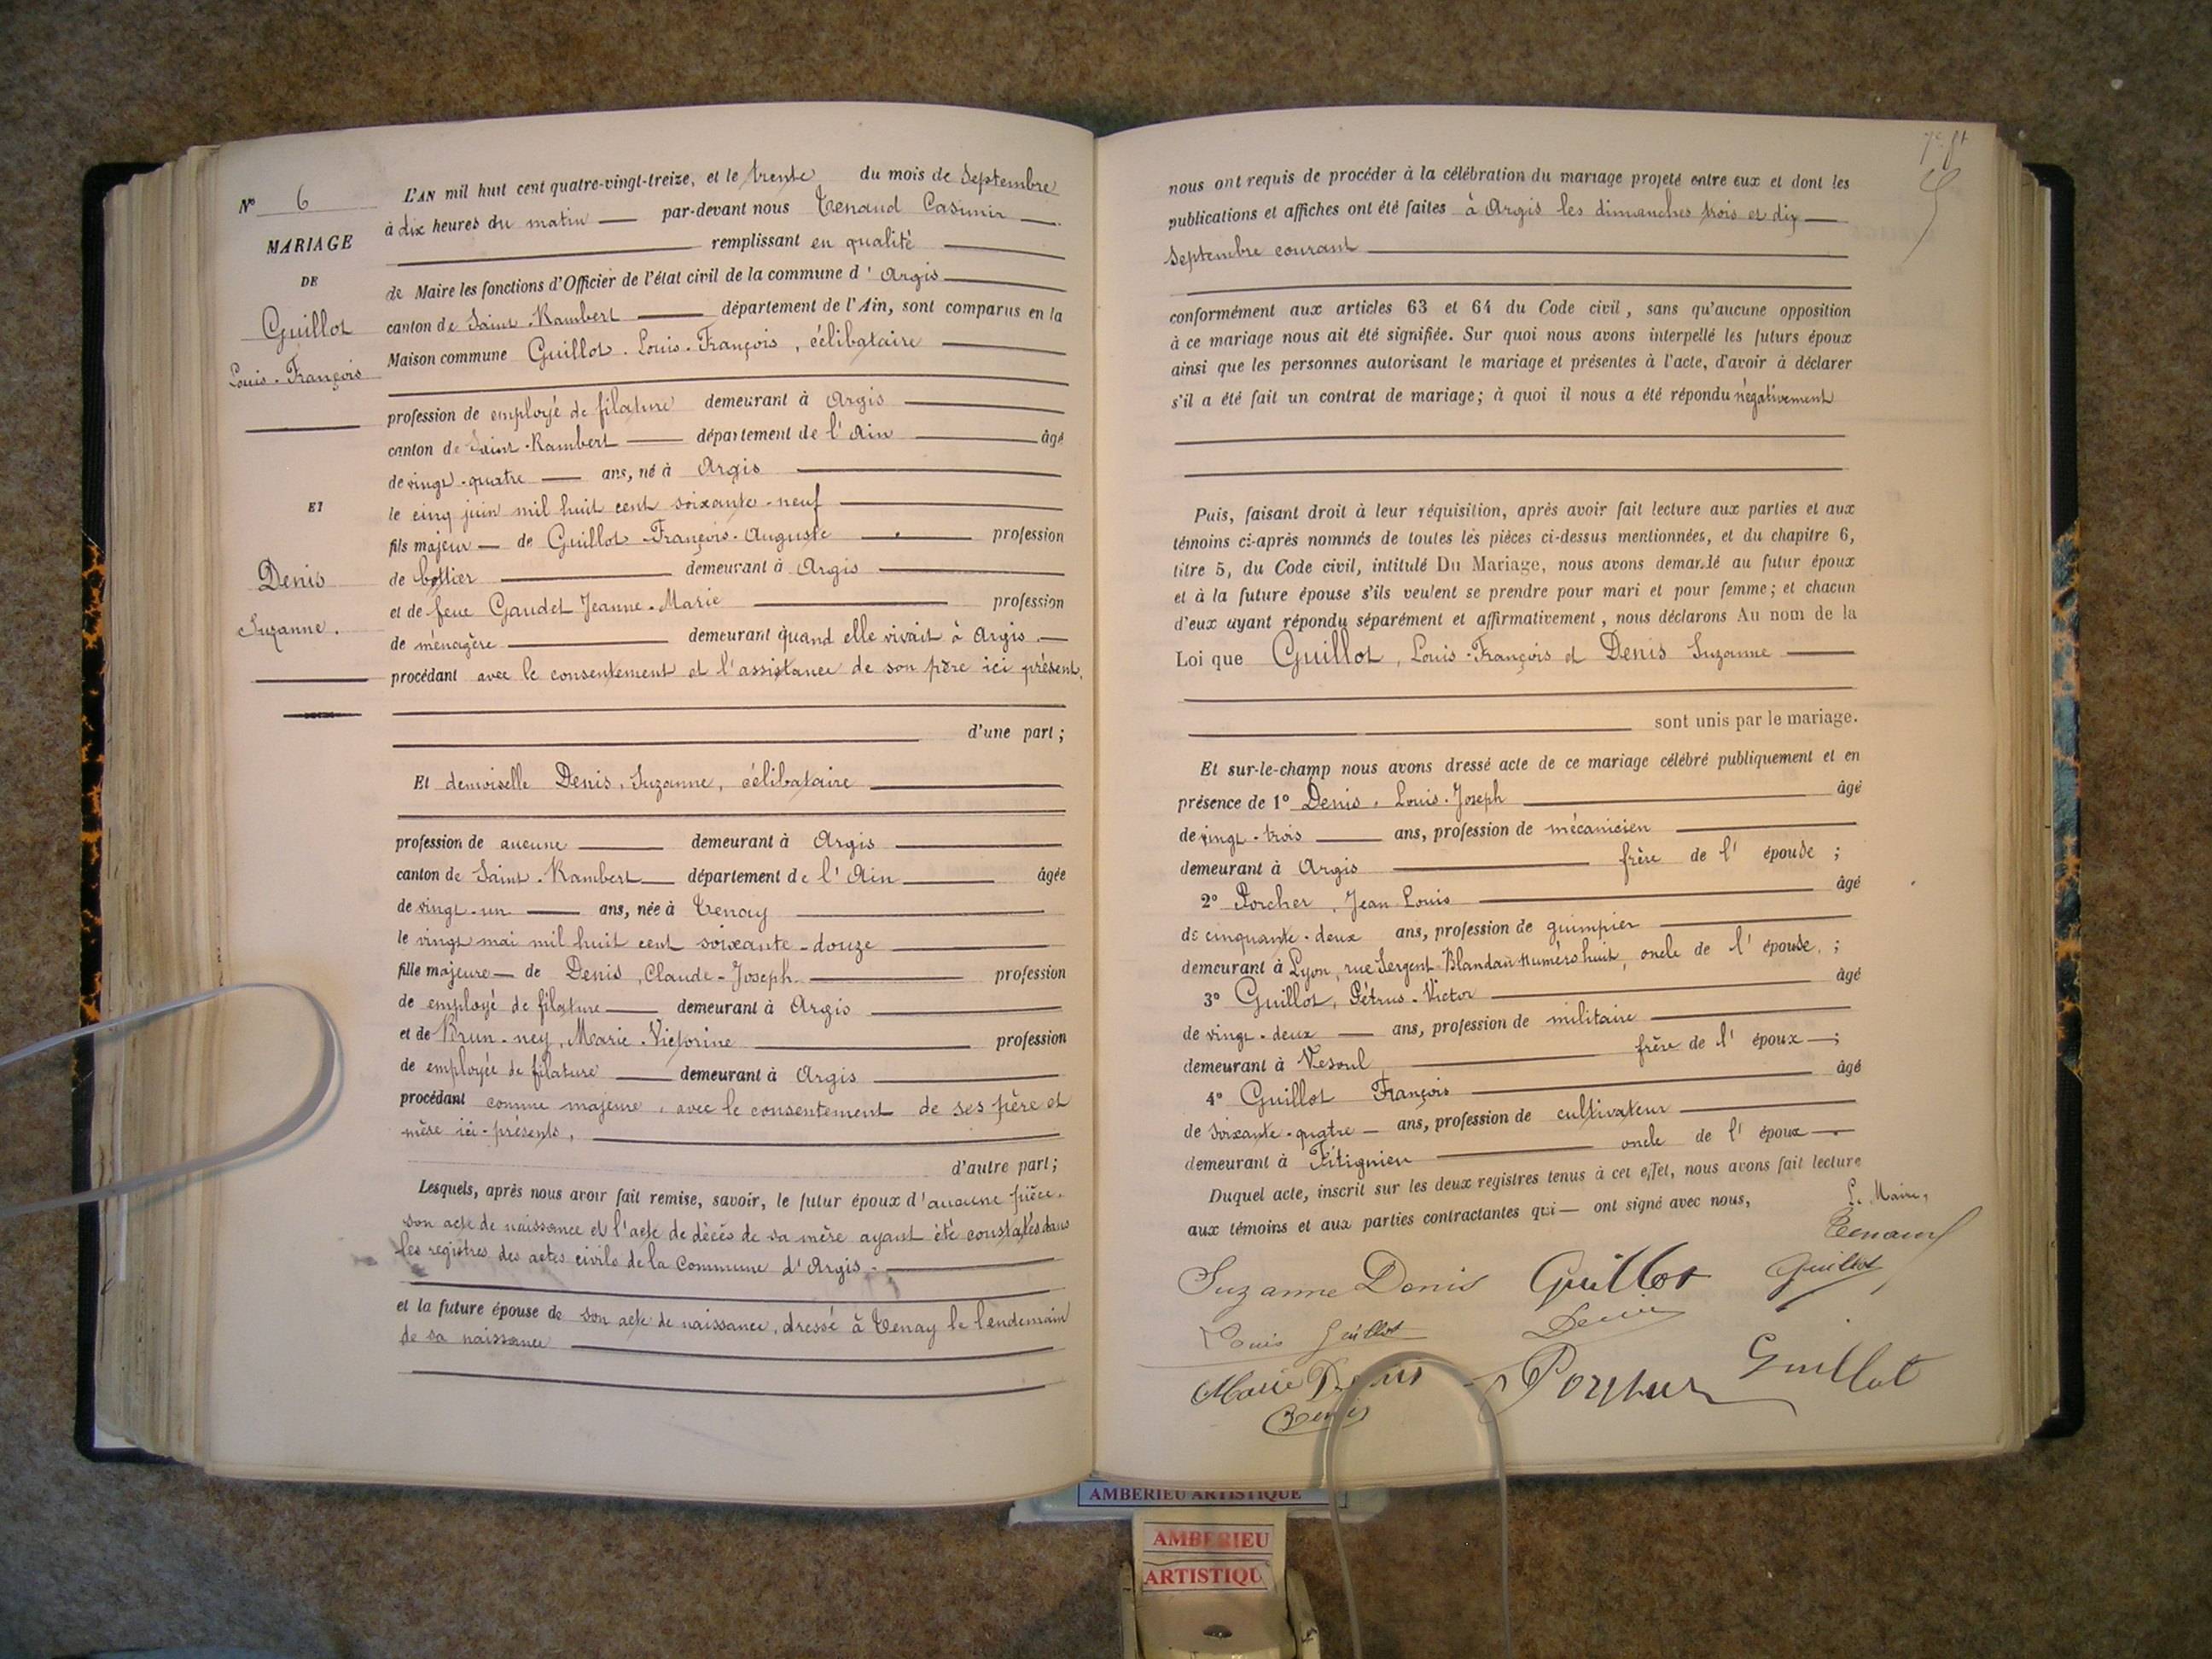 N° 6
MARIAGE
DE
Guillot
Louis-François
ET
Denis
Suzanne.
L'AN mil huit cent quatre-vingt-treize, et le trente du mois de Septembre
à dix heures du matin par-devant nous Tenand Casimir
remplissant en qualité
de Maire les fonctions d'Officier de l'état civil de la commune d'Argis
canton de Saint-Rambert département de l'Ain, sont comparus en la
Maison commune Guillot. Louis-François, célibataire
profession de employé de filature demeurant à Argis
canton de Saint-Rambert département de l'Ain âgé
de vingt-quatre ans, né à Argis
le cinq juin mil huit cent soixante-neuf
fils majeur de Guillot François-Auguste profession
de bottier demeurant à Argis
et de feue Gaudet Jeanne-Marie profession
de ménagère demeurant quand elle vivait à Argis.
procédant avec le consentement et l'assistance de son père ici présent,
d'une part;
Et demoiselle Denis, Suzanne, célibataire
profession de aucune demeurant à Argis
canton de Saint-Rambert département de l'Ain âgée
de vingt-un ans, née à Tenay
le vingt mai mil huit cent soixante-douze
fille majeure de Denis, Claude-Joseph profession
de employé de filature demeurant à Argis
et de Brun-ney, Marie-Victorine profession
de employée de filature demeurant à Argis
procédant comme majeure, avec le consentement de ses père et
mère ici-présents,
d'autre part;
Lesquels, après nous avoir fait remise, savoir, le futur époux d'aucune pièce.
son acte de naissance et l'acte de décès de sa mère ayant été constatés dans
les registres des actes civils de la Commune d'Argis.
et la future épouse de son acte de naissance, dressé à Tenay le lendemain
de sa naissance
nous ont requis de procéder à la célébration du mariage projeté entre eux et dont les
publications et affiches ont été faites à Argis les dimanches trois et dix
Septembre courant
conformément aux articles 63 et 64 du Code civil, sans qu'aucune opposition
à ce mariage nous ait été signifiée. Sur quoi nous avons interpellé les futurs époux
ainsi que les personnes autorisant le mariage et présentes à l'acte, d'avoir à déclarer
s'il a été fait un contrat de mariage; à quoi il nous a été répondu négativement
Puis, faisant droit à leur réquisition, après avoir fait lecture aux parties et aux
témoins ci-après nommés de toutes les pièces ci-dessus mentionnées, et du chapitre 6,
titre 5, du Code civil, intitulé Du Mariage, nous avons demandé au futur époux
et à la future épouse s'ils veulent se prendre pour mari et pour femme; et chacun
d'eux ayant répondu séparément et affirmativement, nous déclarons Au nom de la
Loi que Guillot, Louis-François et Denis Suzanne
sont unis par le mariage.
Et sur-le-champ nous avons dressé acte de ce mariage célébré publiquement et en
présence de 1° Denis, Louis-Joseph âgé
de vingt-trois ans, profession de mécanicien
demeurant à Argis frère de l'épouse;
2° Porcher, Jean Louis âgé
de cinquante-deux ans, profession de guimpier
demeurant à Lyon, rue Sergent-Blandan numéro huit, oncle de l'épouse;
3° Guillot, Pétrus-Victor âgé
de vingt-deux ans, profession de militaire
demeurant à Vesoul frère de l'époux;
4° Guillot François âgé
de soixante-quatre ans, profession de cultivateur
demeurant à Fitignieu oncle de l'époux
Duquel acte, inscrit sur les deux registres tenus à cet effet, nous avons fait lecture
aux témoins et aux parties contractantes qui ont signé avec nous,
Le Maire,
Tenand
Suzanne Denis Guillot Guillot
Louis Guillot Denis
Marie Denis Porcher Guillot
Denis
AMBERIEU ARTISTIQUE
AMBERIEU
ARTISTIQU